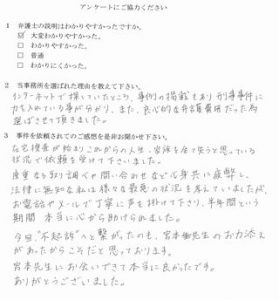 アンケートにご協力ください
1 弁護士の説明はわかりやすかったですか。
☑ 大変わかりやすかった。
□ わかりやすかった。
□ 普通
□ わかりにくかった。
2 当事務所を選ばれた理由を教えて下さい。
インターネットで探していたところ、事例の掲載もあり刑事事件に
力を入れている事が分かり、また、良心的な弁護費用だった為
選ばさせて頂きました。
3 事件を依頼されてのご感想を是非お聞かせ下さい。
在宅捜査が始まりこれからの人生、家族を全て失うと思っている
状況で依頼を受けて下さいました。
度重なる取り調べや問い合わせなど心身共に疲弊し、
法律に無知な私は様々な最悪の状況を考えていましたが、
お電話やメールで丁寧に声を掛けて下さり、半年間という
期間 本当に心から助けられました。
今回、"不起訴"へと繋がったのも、宮本先生のお力添え
があったからこそだと思っております。
宮本先生にお会いできて本当に良かったです。
ありがとうございました。